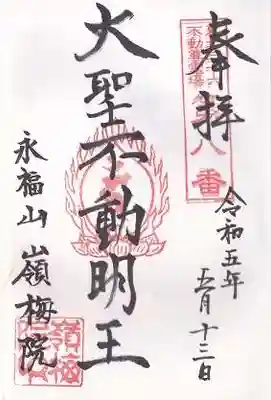 奉拝
八番
令和五年
五月十三日
大聖不動明王
永福山 嶺梅院